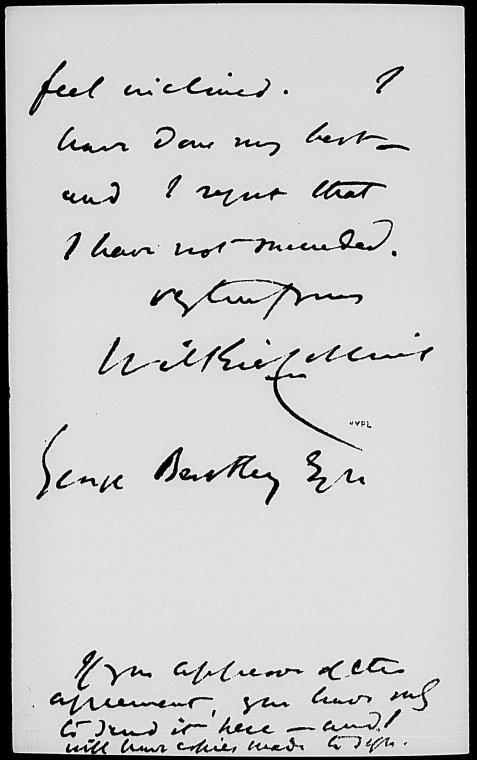 feel inclined. I
have done my best —
and I regret that
I have not succeeded.
Vy truly yours
Wilkie Collins
NYPL
George Bentley Esqre
If you approve of the
agreement, you have only
to send it here — and I
will have copies made to sign.